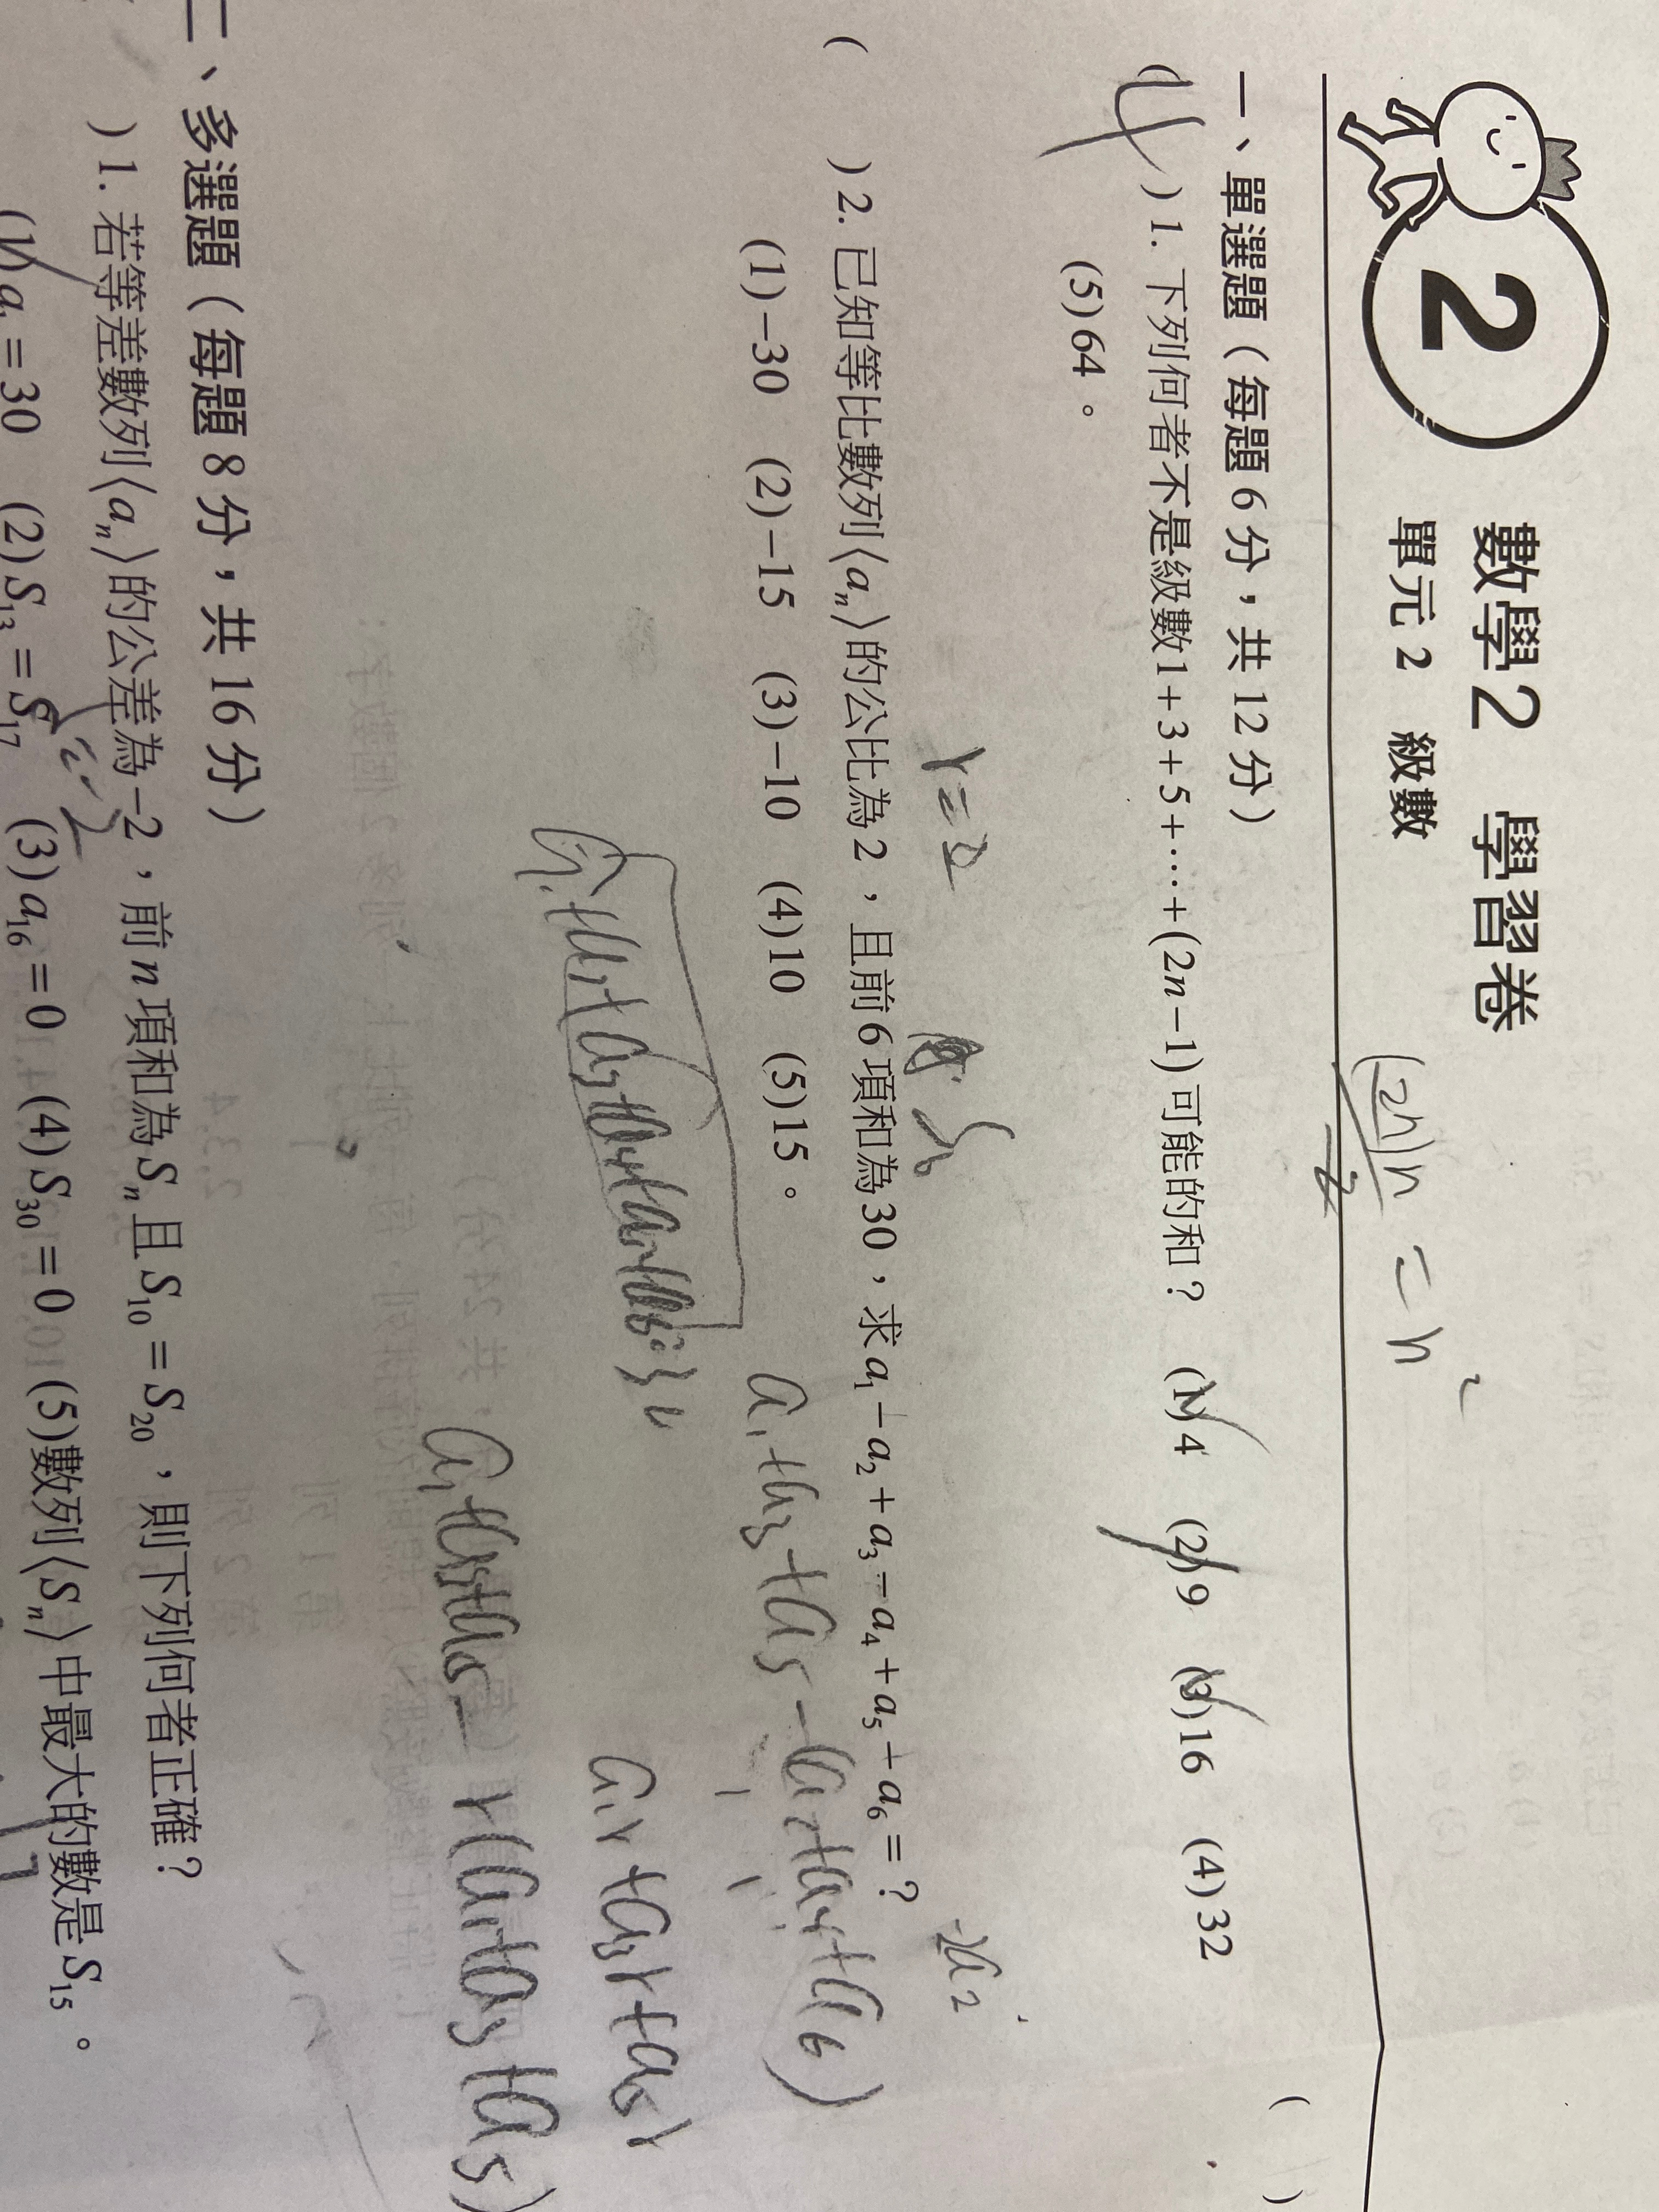 2
數學2 學習卷
單元2 級數
(2n)n
2
= n²
一、單選題（每題6分，共12分）
(4) 1. 下列何者不是級數1+3+5+⋯+(2n−1)可能的和？ (1)4 (2)9 (3)16 (4)32
(5)64。
r=2
S6
-2a2
( ) 2. 已知等比數列⟨aₙ⟩的公比為2，且前6項和為30，求a₁−a₂+a₃−a₄+a₅−a₆=？
(1)−30 (2)−15 (3)−10 (4)10 (5)15。
a1+a3+a5-(a2+a4+a6)
a1r+a3r+a5r
a1+a3+a5-r(a1+a3+a5)
二、多選題（每題8分，共16分）
) 1. 若等差數列⟨aₙ⟩的公差為−2，前n項和為Sₙ且S₁₀=S₂₀，則下列何者正確？
(1)a₁=30 (2)S₁₃=S₁₇ (3)a₁₆=0 (4)S₃₀=0 (5)數列⟨Sₙ⟩中最大的數是S₁₅。